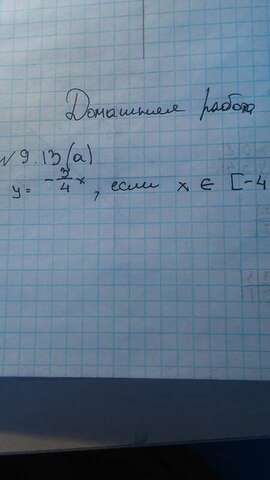 Домашняя работа
№ 9.13(а)
y = -3/4 x, если x ∈ [-4